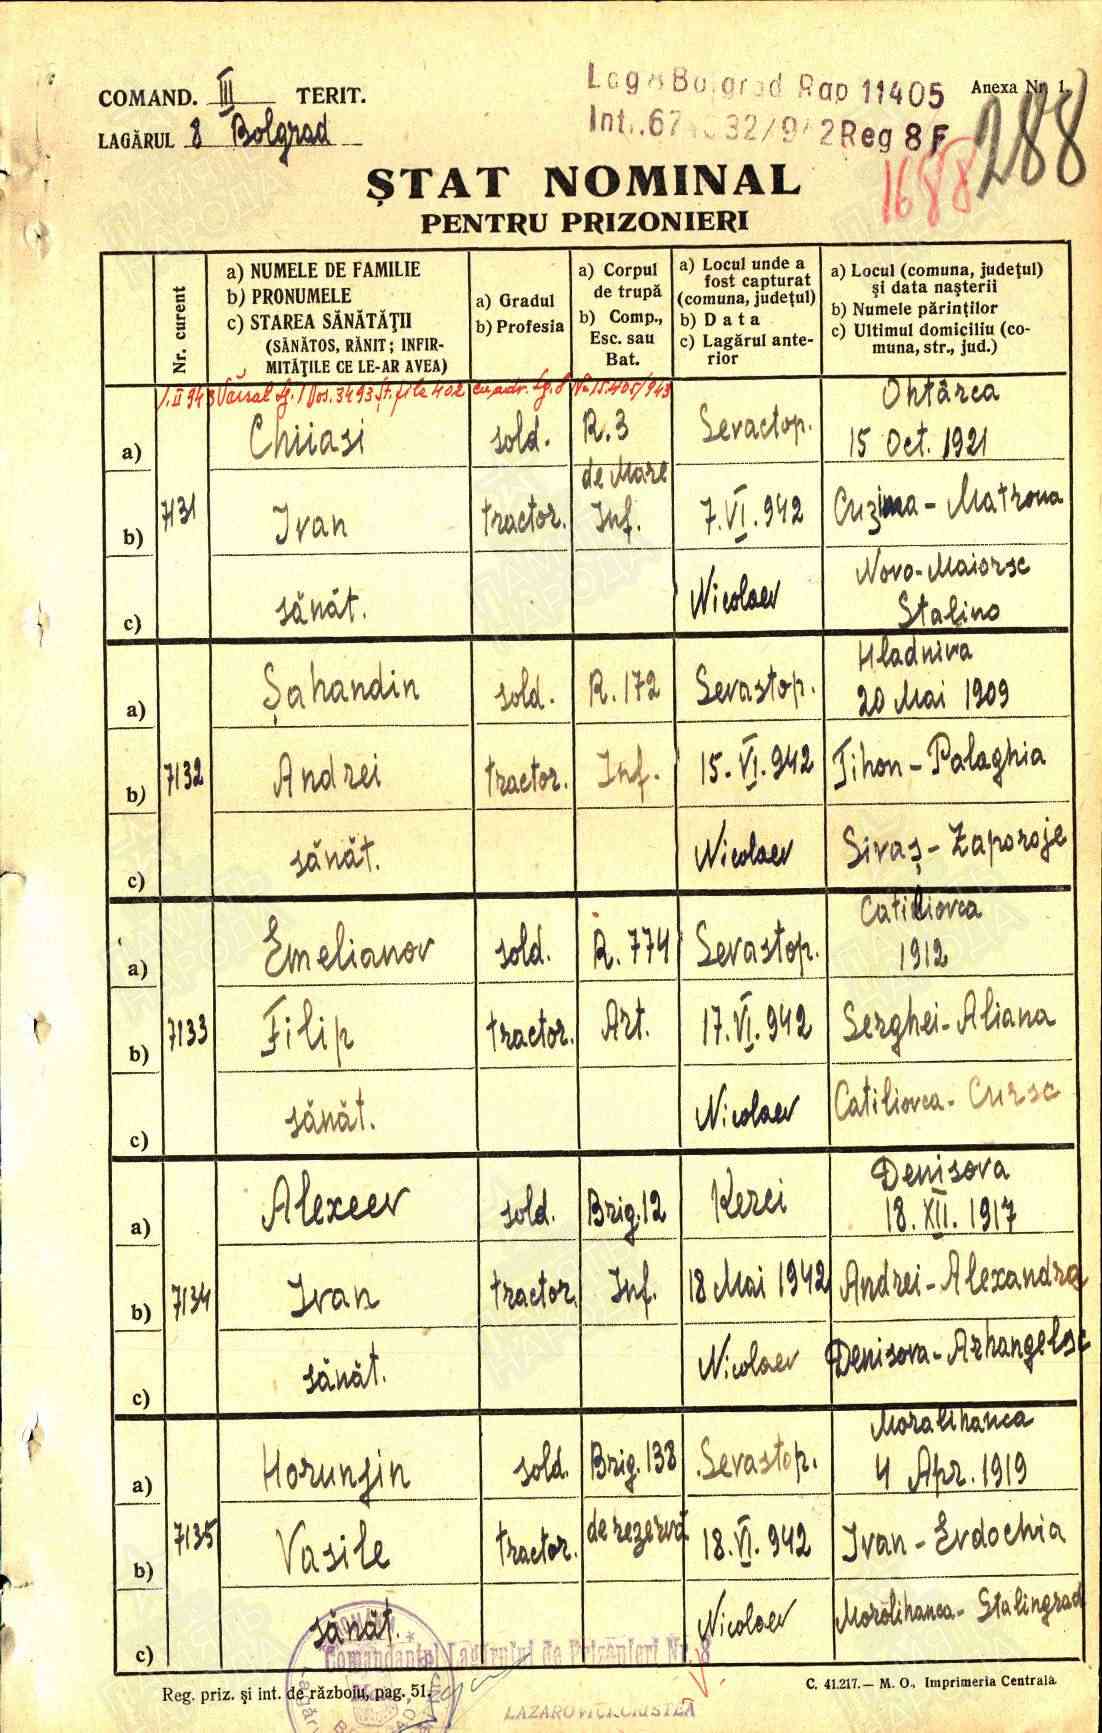 COMAND. III TERIT.
LAGĂRUL 8 Bolgrad
Lag 8 Bolgrad Rap 11405
Reg 8 F
Anexa Nr. 1.
288
1688
ȘTAT NOMINAL
PENTRU PRIZONIERI
Nr. curent
a) NUMELE DE FAMILIE
b) PRONUMELE
c) STAREA SĂNĂTĂȚII
(SĂNĂTOS, RĂNIT; INFIR-
MITĂȚILE CE LE-AR AVEA)
a) Gradul
b) Profesia
a) Corpul
de trupă
b) Comp.,
Esc. sau
Bat.
a) Locul unde a
fost capturat
(comuna, județul)
b) Data
c) Lagărul ante-
rior
a) Locul (comuna, județul)
și data nașterii
b) Numele părinților
c) Ultimul domiciliu (co-
muna, str., jud.)
1.II 943 Vărsat lg. 1 Dos. 3493 Șt. file 402 cu adr. lg. 8 No 15.405/943
a) Chiiasi sold. R. 3 Sevactop. Ohtârca
15 Oct. 1921
7131
b) Ivan tractor. de Mare Inf. 7.VI.942 Cuzima - Matrona
c) sănăt. Nicolaev Novo-Maiorsc
Stalino
a) Șahandin sold. R. 172 Sevastop. Hladniva
20 Mai 1909
7132
b) Andrei tractor. Inf. 15.VI.942 Tihon - Palaghia
c) sănăt. Nicolaev Sivaș - Zaporoje
a) Emelianov sold. R. 774 Sevastop. Catiliovca
1912
7133
b) Filip tractor. Art. 17.VI.942 Serghei - Aliana
c) sănăt. Nicolaev Catiliovca - Cursc
a) Alexeev sold. Brig. 12 Kerci Denisova
18.XII.1917
7134
b) Ivan tractor. Inf. 18 Mai 1942 Andrei - Alexandra
c) sănăt. Nicolaev Denisova - Arhangelsc
a) Horunjin sold. Brig. 138 Sevastop. Moralihanca
4 Apr. 1919
7135
b) Vasile tractor. de rezervă 18.VI.942 Ivan - Evdochia
c) sănăt. Nicolaev Morolihanca - Stalingrad
Comandantul Lagărului de Prizonieri Nr. 8
Reg. priz. și int. de războiu, pag. 51.
C. 41.217.— M. O., Imprimeria Centrală.